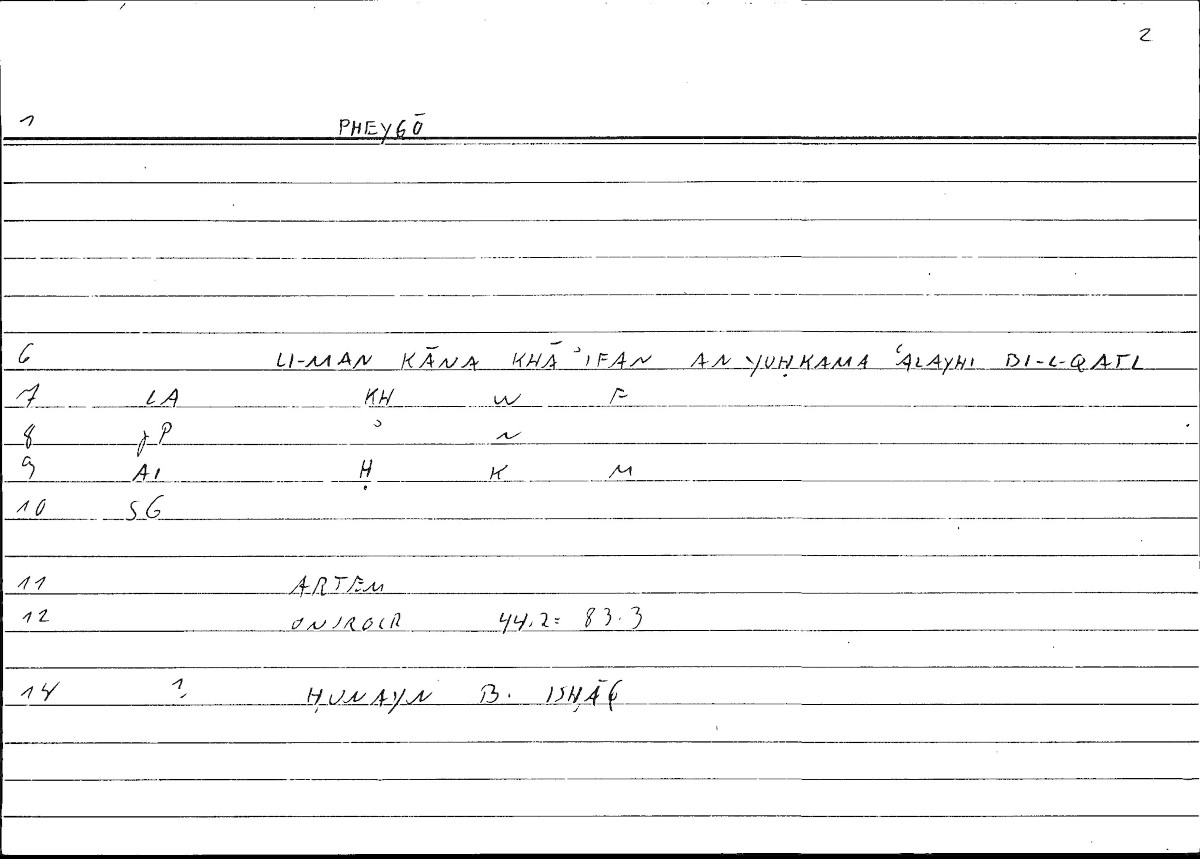 2
1 PHEYGŌ
6 LI-MAN KĀNA KHĀʾIFAN AN YUḤKAMA ʿALAYHI BI-L-QATL
7 LA KH W F
8 jP ʾ N
9 AI Ḥ K M
10 SG
11 ARTEM
12 ONIROCR 44.2= 83.3
14 1. ḤUNAYN B. ISḤĀQ